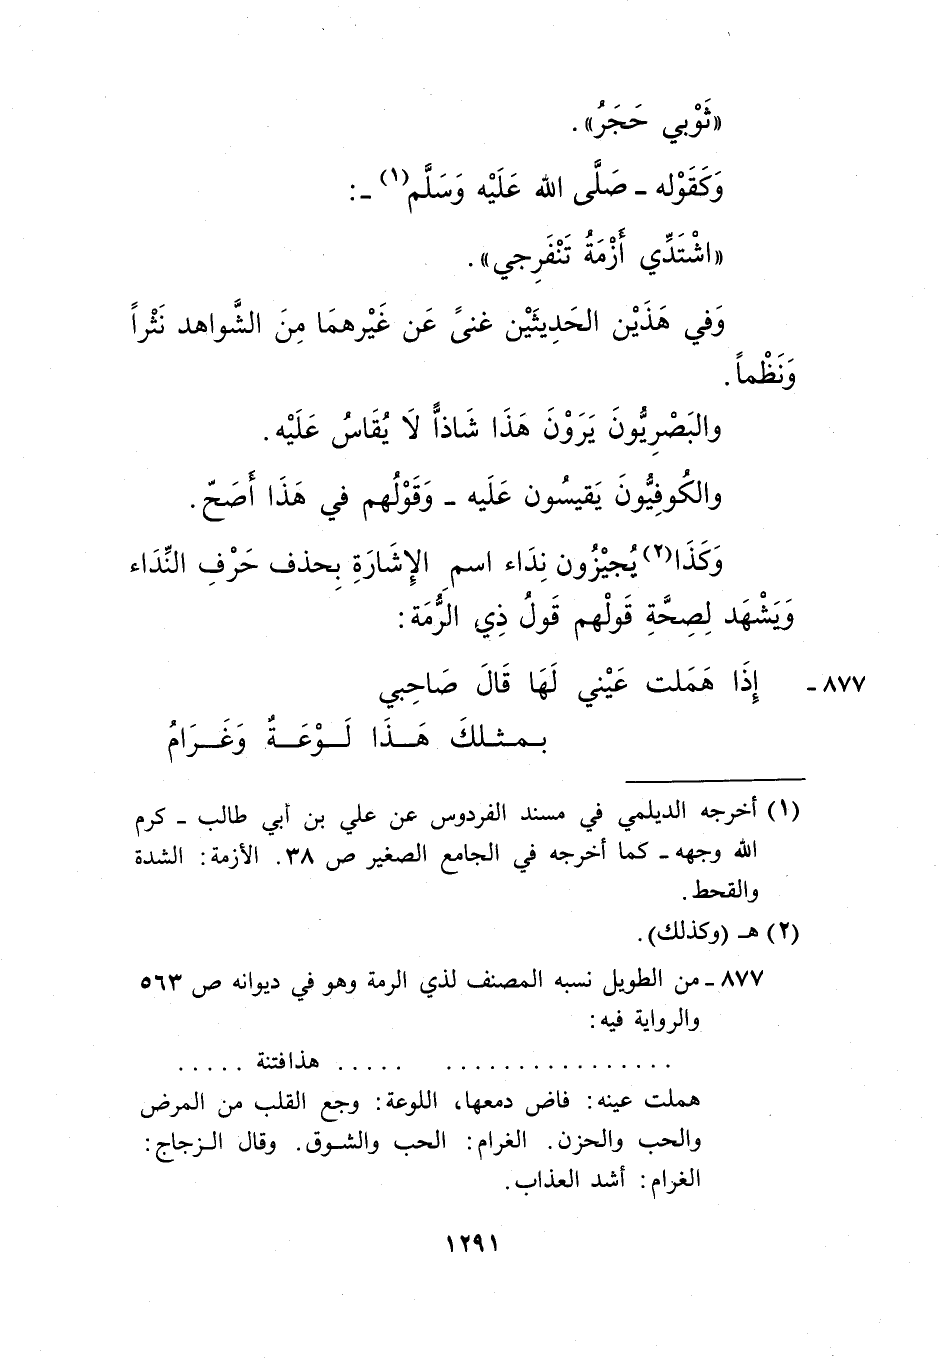 «ثَوْبي حَجَرُ».
وَكَقَوْله ـ صَلَّى الله عَلَيْه وَسَلَّم(١) ـ:
«اشْتَدِّي أَزْمَةُ تَنْفَرِجي».
وَفي هَذَيْن الحَدِيثَيْن غنىً عَن غَيْرهمَا مِنَ الشَّواهد نَثْراً
وَنَظْماً.
والبَصْرِيُّونَ يَرَوْنَ هَذَا شَاذاًّ لَا يُقَاسُ عَلَيْه.
والكُوفِيُّونَ يَقيسُون عَلَيه ـ وَقَوْلُهم في هَذَا أَصَحّ.
وَكَذَا(٢) يُجيْزُون نِدَاء اسمِ الإِشَارَةِ بِحذف حَرْفِ النِّدَاء
وَيَشْهَد لِصِحَّةِ قَولْهم قَولُ ذِي الرُّمَة:
٨٧٧ ـ إِذَا هَمَلت عَيْني لَهَا قَالَ صَاحِبي
بـمـثـلكَ هَـذَا لَـوْعَـةٌ وَغَـرَامُ
(١) أخرجه الديلمي في مسند الفردوس عن علي بن أبي طالب ـ كرم
الله وجهه ـ كما أخرجه في الجامع الصغير ص ٣٨. الأزمة: الشدة
والقحط.
(٢) هـ (وكذلك).
٨٧٧ ـ من الطويل نسبه المصنف لذي الرمة وهو في ديوانه ص ٥٦٣
والرواية فيه:
. . . . . . . . . . . . . . . . . . . . . هذا فتنة . . . . .
هملت عينه: فاض دمعها، اللوعة: وجع القلب من المرض
والحب والحزن. الغرام: الحب والشوق. وقال الزجاج:
الغرام: أشد العذاب.
١٢٩١